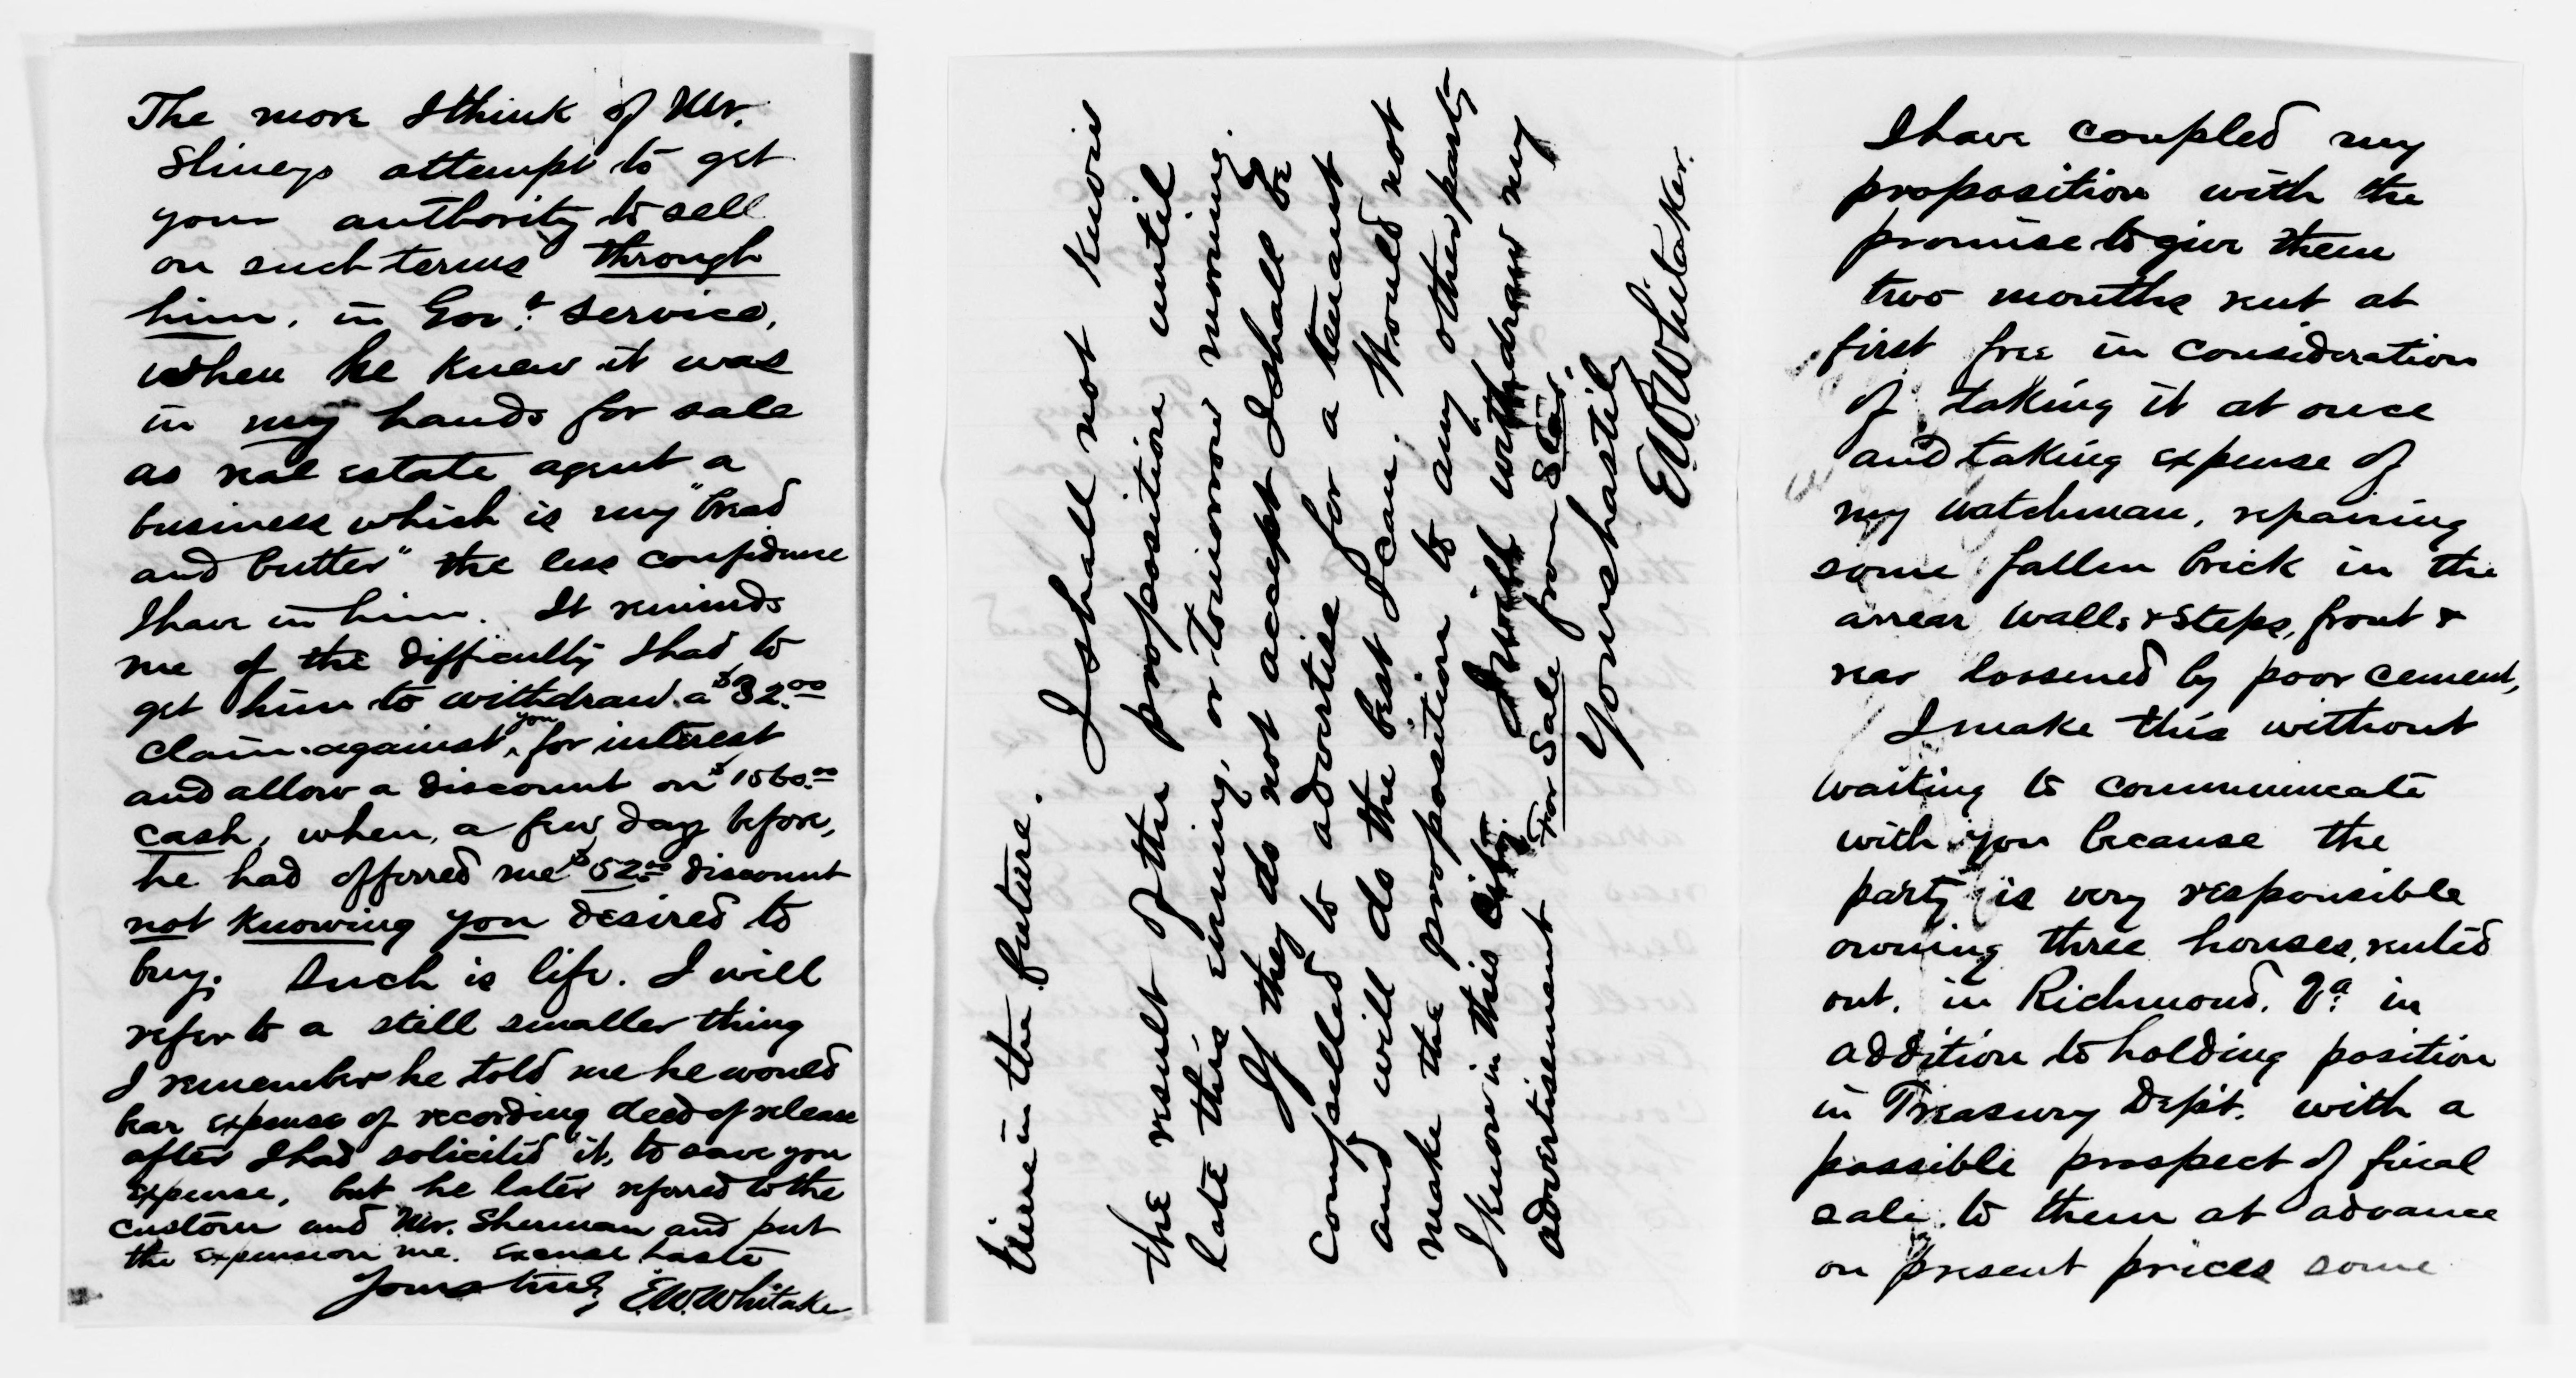 The more I think of Mr.
Slineys attempt to get
your authority to sell
on such terms through
him, in Gov.t service,
when he knew it was
in my hands for sale
as real estate agent a
business which is my "bread
and butter" the less confidence
I have in him. It reminds
me of the difficulty I had to
get him to withdraw a $32.00
claim against you for interest
and allow a discount on $1560.00
cash, when, a few day before,
he had offerred me $52.00 discount
not knowing you desired to
buy. Such is life. I will
refer to a still smaller thing
I remember he told me he would
bear expense of recording deed of release
after I had solicited it, to save you
expense, but he later referred to the
custom and Mr. Sherman and put
the expense on me. Excuse haste
Yours truly, E.W. Whitaker
I have coupled my
proposition with the
promise to give them
two months rent at
first free in consideration
of taking it at once
and taking expense of
my watchman, repairing
some fallen brick in the
arrear walls & steps, front &
rear lossened by poor cement,
I make this without
waiting to communicate
with you because the
party is very responsible
owning three houses, rented
out, in Richmond, Va. in
addition to holding position
in Treasury Dept. with a
possible prospect of final
sale to them at advance
on present prices some
time in the future.
I shall not know
the result of the proposition until
late this evening, or tomorrow morning.
If they do not accept I shall be
compelled to advertise for a tenant
and will do the best I can. Would not
make the proposition to any other party
I know in this city. I will withdraw my
advertisement For Sale from Star.
Yours hastily
E W Whitaker.